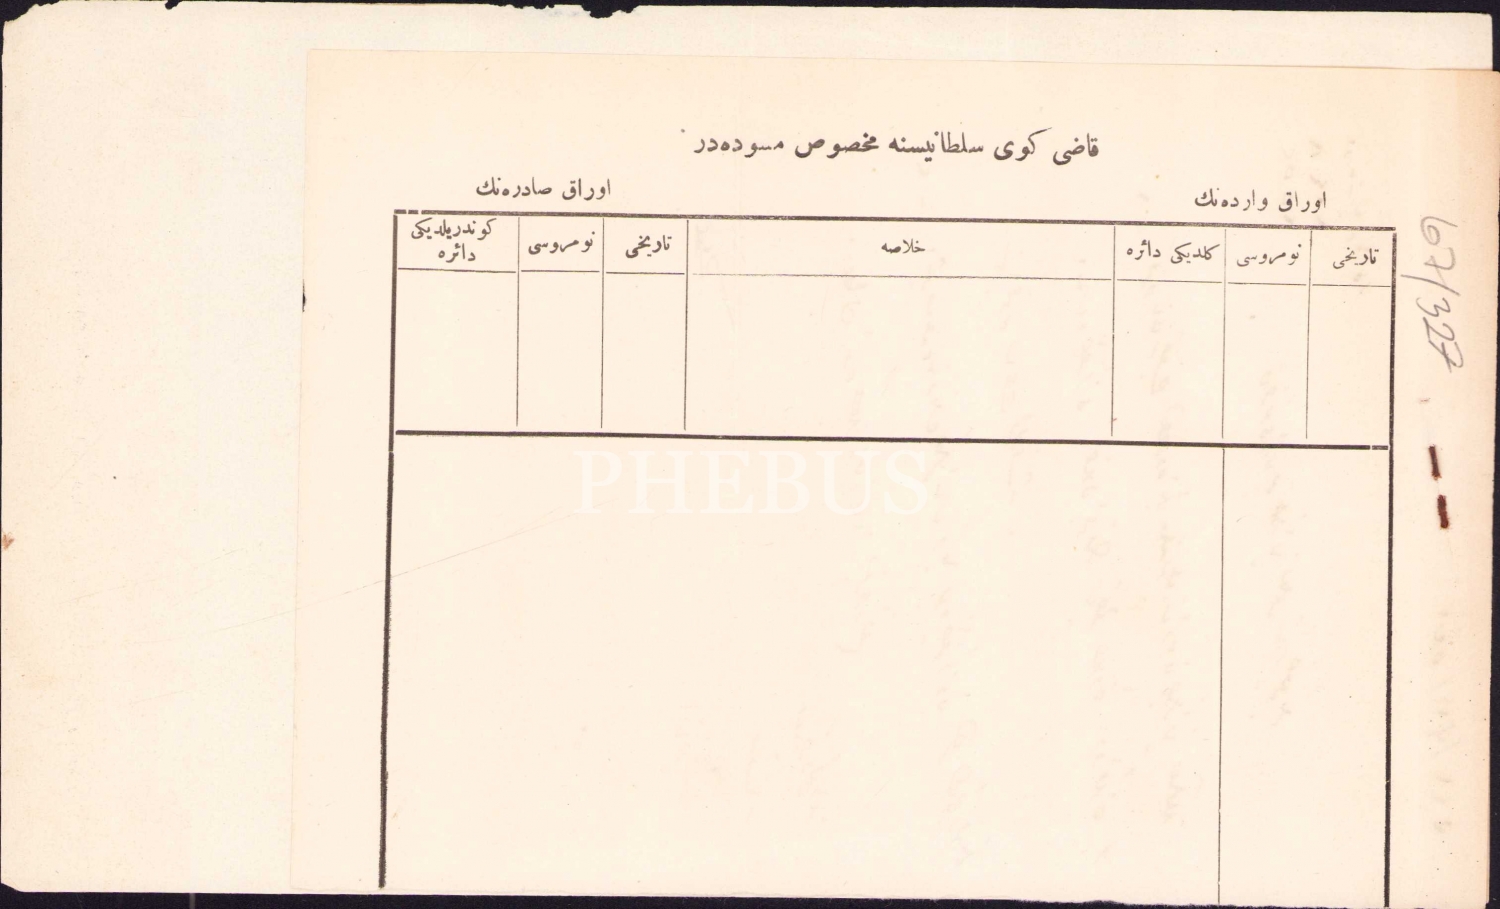 قاضی کوی سلطانیسنه مخصوص مسوده‌در
اوراق وارده‌نك
اوراق صادره‌نك
تاریخی
نومروسی
كلدیكی دائره
خلاصه
تاریخی
نومروسی
كوندریلدیكی
دائره
67/327
PHEBUS